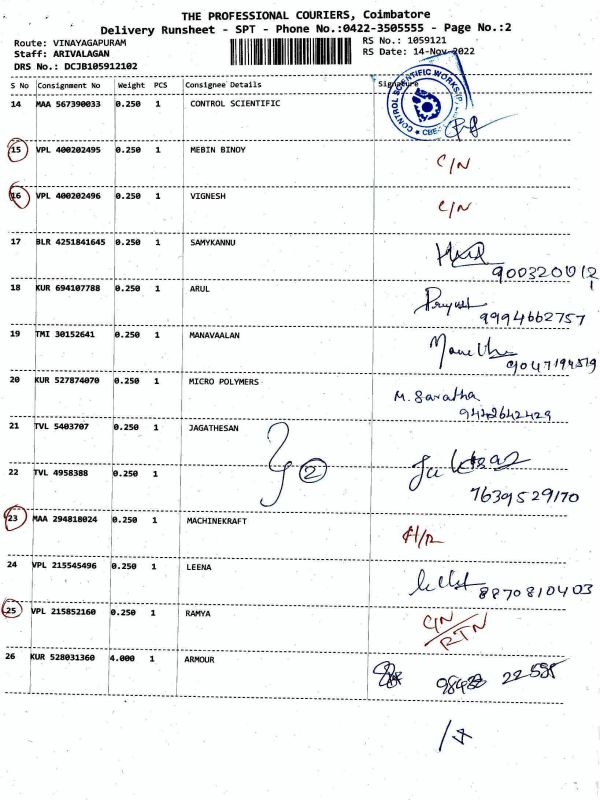 THE PROFESSIONAL COURIERS, Coimbatore
Delivery Runsheet - SPT - Phone No.:0422-3505555 - Page No.:2
Route: VINAYAGAPURAM
Staff: ARIVALAGAN
DRS No.: DCJB105912102
RS No.: 1059121
RS Date: 14-Nov-2022
S No Consignment No Weight PCS Consignee Details Signature
14 MAA 567390033 0.250 1 CONTROL SCIENTIFIC
CONTROL SCIENTIFIC WORKS
15 VPL 400202495 0.250 1 MEBIN BINOY C/N
16 VPL 400202496 0.250 1 VIGNESH C/N
17 BLR 4251841645 0.250 1 SAMYKANNU
18 KUR 694107788 0.250 1 ARUL
9994662757
19 TMI 30152641 0.250 1 MANAVAALAN
20 KUR 527874070 0.250 1 MICRO POLYMERS M. Saratha
9442642429
21 TVL 5403707 0.250 1 JAGATHESAN
2
22 TVL 4958388 0.250 1
7639529170
23 MAA 294818024 0.250 1 MACHINEKRAFT
24 VPL 215545496 0.250 1 LEENA
8870810403
25 VPL 215852160 0.250 1 RAMYA C/N
RTN
26 KUR 528031360 4.000 1 ARMOUR